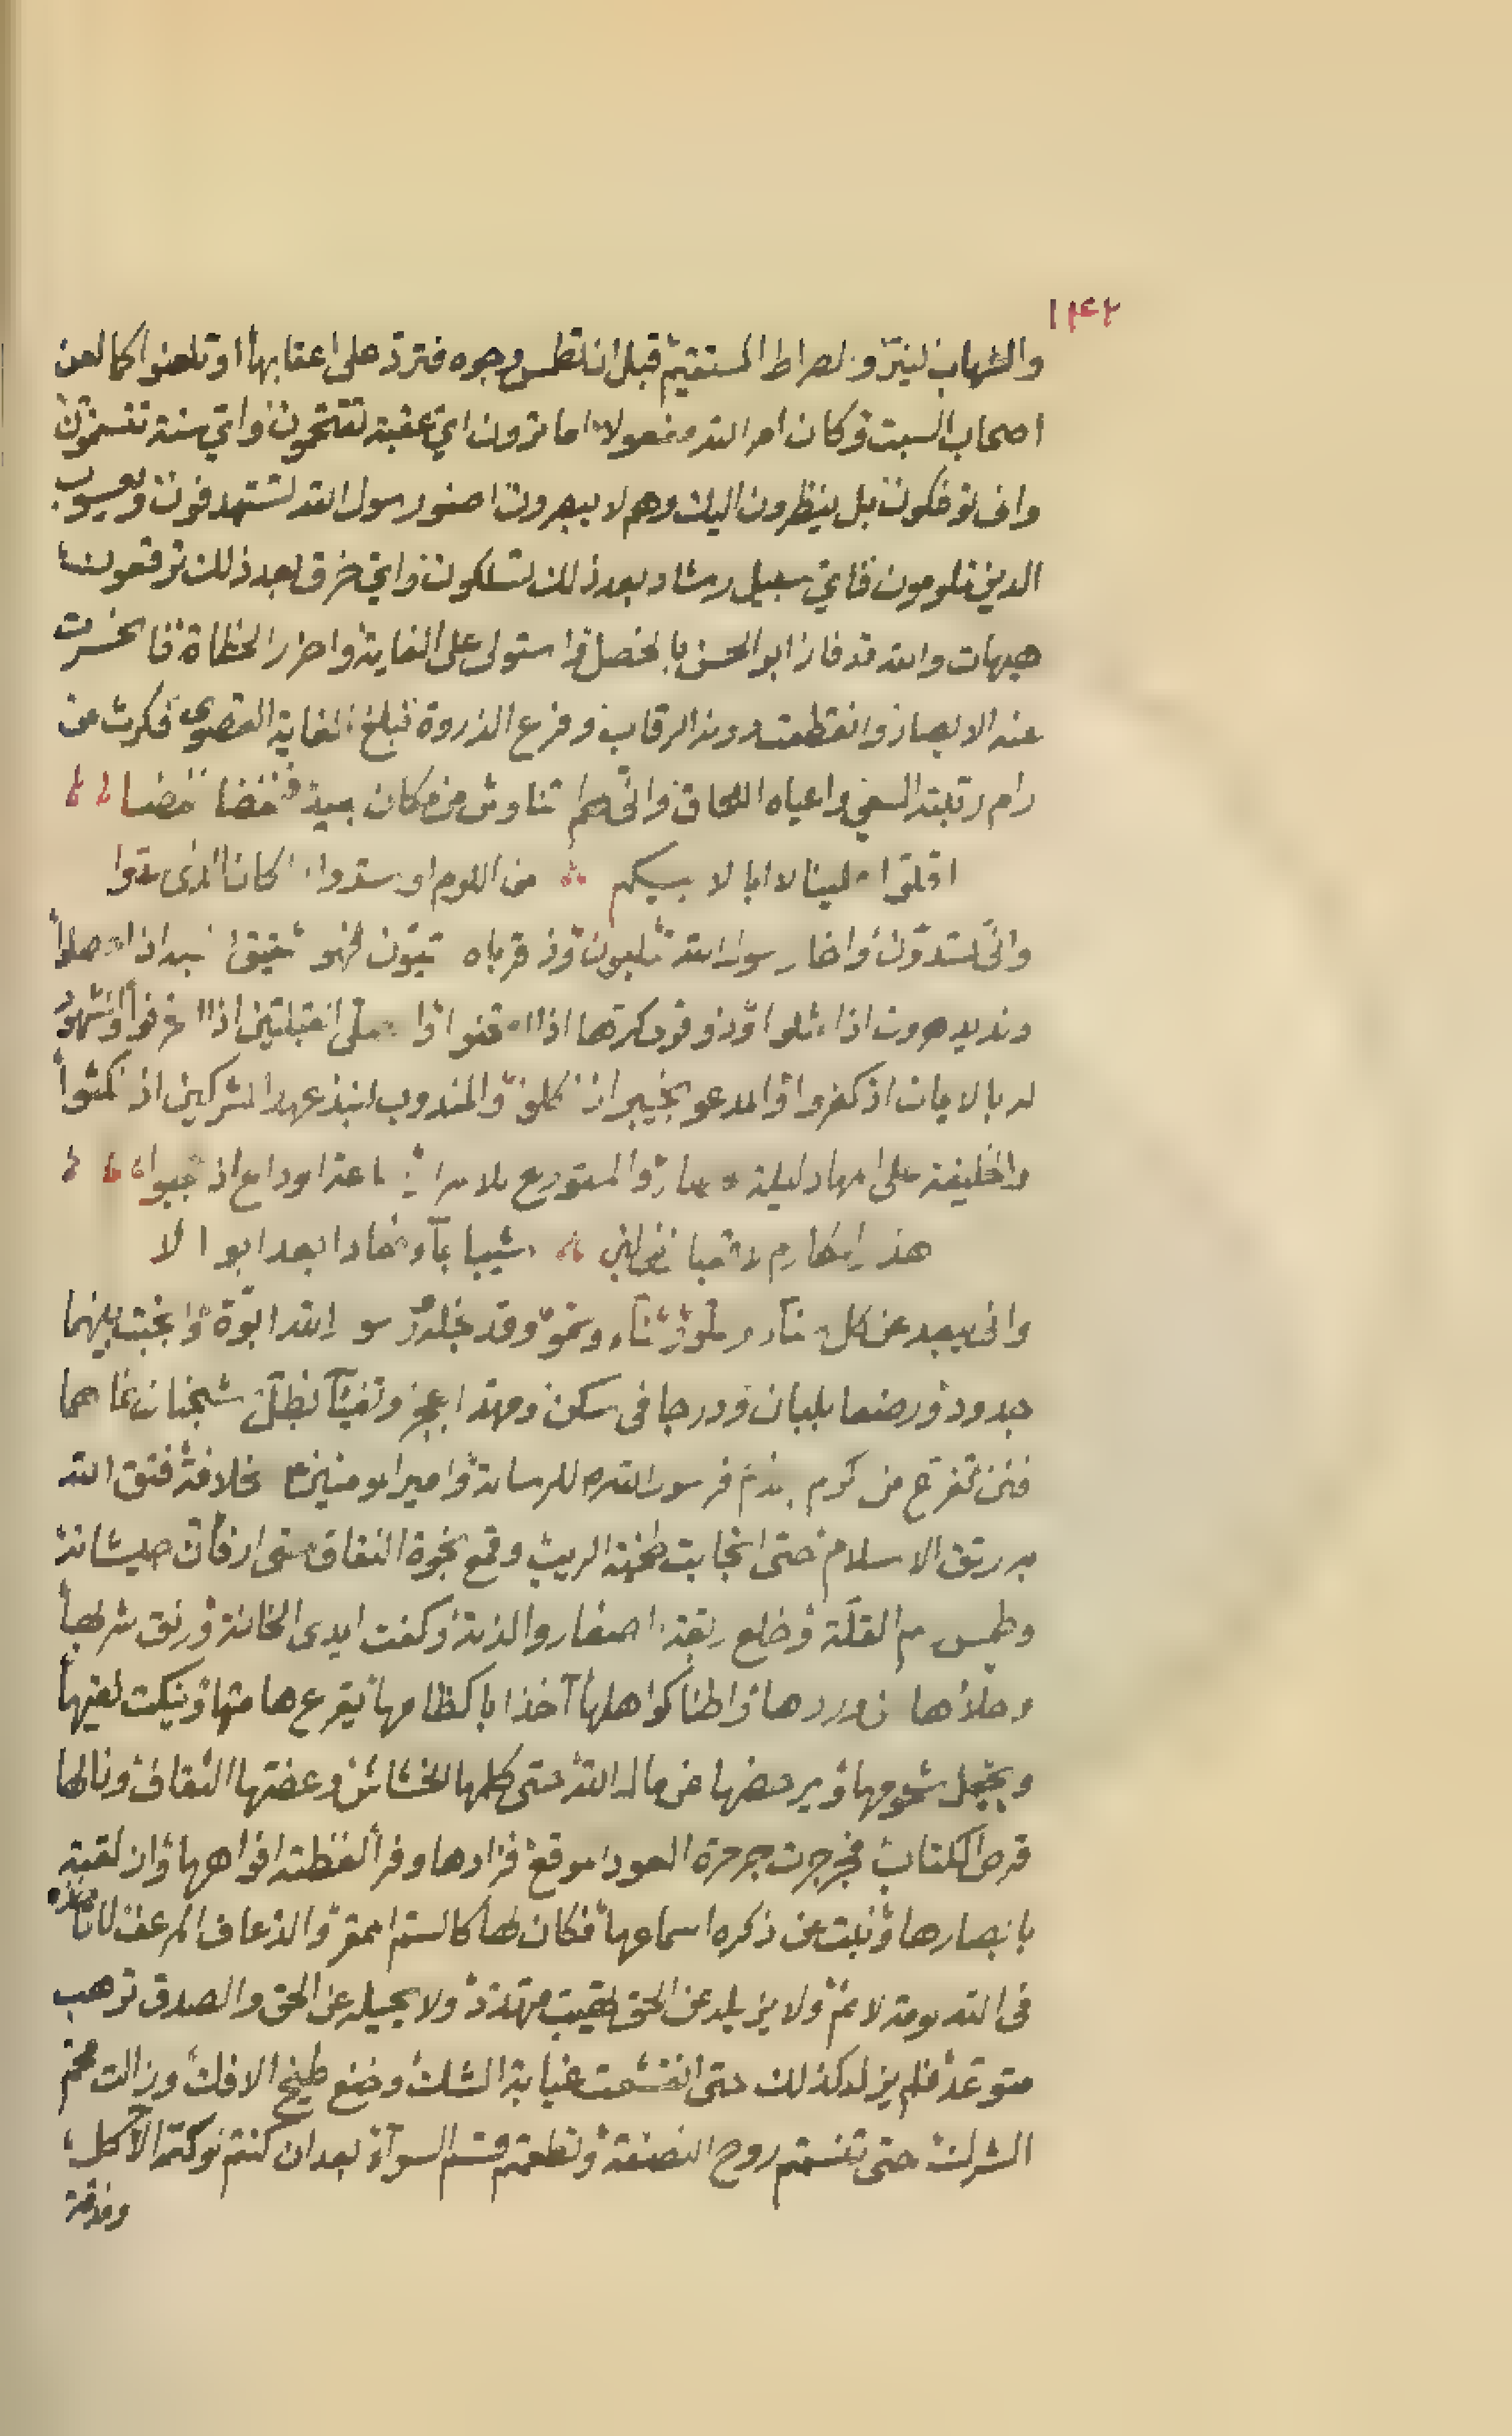 ١٤٢
والشهاب لنيّر والصراط المستقيم قبل ان تطمس وجوه فتردّ على اعقابها او تلعنوا كما لعن
اصحاب السبت وكان امر الله مفعولا اما ترون ايّ عقبة تقتحمون وايّ سنة تتسنمون
وانى تؤفكون بل ينظرون اليك وهم لا يبصرون اصنو رسول الله تستهدفون ويعسوب
الدين تلومون فايّ سبيل رشاد بعد ذلك تسلكون وايّ خرق بعد ذلك ترقعون
هيهات والله قد فاز ابو الحسن بالخصل واستولى على الغاية واحرز الخطاة فانحسرت
عنه الابصار وانقطعت دونه الرقاب وفرع الذروة فبلغ الغاية القصوى فكرث من
رام رتبته السعي واعياه اللحاق وانّى لهم التناوش من مكان بعيد فخفضا خفضا
اقلّوا علينا لا ابا لابيكم من اللوم او سدّوا المكان الذي سدّوا
وانّى تسدّون واخا رسول الله تثلبون وذا قرباه تسبّون فهو شقيق نسبه اذا حصلوا
ونديد هرون اذا مثلوا وذو قربى كبرتها اذا امتحنوا والمصلّي القبلتين اذا انحرفوا والمشهود
له بالايمان اذ كفروا والمدعو بخيبر اذ نكلوا والمندوب لنبذ عهد المشركين اذ نكثوا
والخليفة على المهاد ليلة الحصار والمستودع للاسرار ساعة الوداع اذ حجبوا
هذي المكارم لا قعبان من لبن شيبا بماء فعادا بعد ابوالا
وانى يبعد عن كل سناء وعلو وثناء وسموّ وقد نجله ورسول الله ابوّة وانجبت بينهما
جدود ورضعا بلبان ودرجا في سكن ومهدا بحجر وتفيّئا بظلّ شجنان نماهما
فنن تفرّع من كرم جذم فرسول الله للرسالة وامير المومنين للخلافة فتق الله
به رتق الاسلام حتى انجابت طخية الريب وقمع نخوة النفاق حتى ارفأن جيشانه
وطمس رسم القلّة وخلع ربقة الصغار والذلة وكفت ايدي الخائنة ورنق شربها
وحلأها عن وردها واطئا كواهلها آخذا باكظامها يقرع هامتها وينكت لقيها
ويجمل شحومها ويرحضها عن مال الله حتى كلمها الخشاش وعضتها الثقاف ونالها
قرض الكتاب فجرجرت جرجرة العود الموقع فزادها وقرا لفظته افواهها وازلقته
بابصارها ونبت عن ذكره اسماعها فكان لها كالسمّ الممقر والذعاف المزعف لا تاخذه
في الله لومة لائم ولا يزيله عن الحق تهيّب متهدد ولا يحيله عن الحق والصدق ترهب
متوعد فلم يزل كذلك حتى انقشعت غيابة الشك وخنع طيخ الافك وزالت قحم
الشرك حتى تنسمتم روح النصفة وتطعمتم قسم السوآء بعد ان كنتم لوكة الآكل
ومذقة